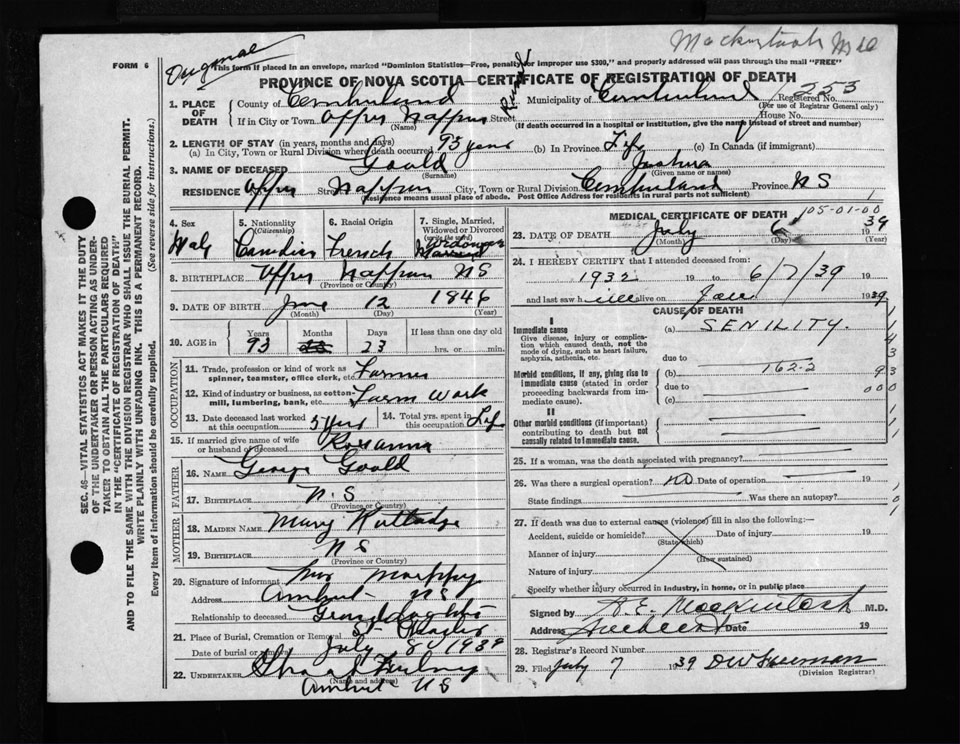 Mackintosh
Original
FORM 6
This form if placed in an envelope, marked "Dominion Statistics—Free, penalty for improper use $300," and properly addressed will pass through the mail "FREE"
PROVINCE OF NOVA SCOTIA—CERTIFICATE OF REGISTRATION OF DEATH
SEC. 46—VITAL STATISTICS ACT MAKES IT THE DUTY
OF THE UNDERTAKER OR PERSON ACTING AS UNDER-
TAKER TO OBTAIN ALL THE PARTICULARS REQUIRED
IN THE "CERTIFICATE OF REGISTRATION OF DEATH"
AND TO FILE THE SAME WITH THE DIVISION REGISTRAR WHO SHALL ISSUE THE BURIAL PERMIT.
WRITE PLAINLY WITH UNFADING INK. THIS IS A PERMANENT RECORD.
Every item of information should be carefully supplied. (See reverse side for instructions.)
1. PLACE OF DEATH County of Cumberland Municipality of Cumberland Registered No. 253
(For use of Registrar General only)
If in City or Town Upper Nappan Street Rural House No.
(Name) (If death occurred in a hospital or institution, give the name instead of street and number)
2. LENGTH OF STAY (in years, months and days)
(a) In City, Town or Rural Division where death occurred 93 years (b) In Province Life (c) In Canada (if immigrant)
3. NAME OF DECEASED Goold Joshua
(Surname) (Given name or names)
RESIDENCE Upper Street Nappan City, Town or Rural Division Cumberland Province NS
(Residence means usual place of abode. Post Office Address for residents in rural parts not sufficient)
4. Sex 5. Nationality 6. Racial Origin 7. Single, Married,
(Citizenship) Widowed or Divorced
(write the word)
Male Canadian French Widower
8. BIRTHPLACE Upper Nappan NS
(Province or Country)
9. DATE OF BIRTH June 12 1846
(Month) (Day) (Year)
10. AGE in Years Months Days If less than one day old
93 23 hrs. or min.
OCCUPATION
11. Trade, profession or kind of work as
spinner, teamster, office clerk, etc. Farmer
12. Kind of industry or business, as cotton-
mill, lumbering, bank, etc. Farm Work
13. Date deceased last worked
at this occupation 14. Total yrs. spent in
this occupation Life
15. If married give name of wife
or husband of deceased Roxanna
FATHER
16. NAME George Goold
17. BIRTHPLACE N.S
(Province or Country)
MOTHER
18. MAIDEN NAME Mary
19. BIRTHPLACE NS
(Province or Country)
20. Signature of informant Mrs
Address Amherst NS
Relationship to deceased Granddaughter
21. Place of Burial, Cremation or Removal
Date of burial or removal July 8 1939
22. UNDERTAKER
(Name and address)
Amherst NS
MEDICAL CERTIFICATE OF DEATH
105-01-00
23. DATE OF DEATH July 6 1939
(Month) (Day) (Year)
24. I HEREBY CERTIFY that I attended deceased from:
1932 19 to 6/7/39 19
and last saw h alive on 1939
CAUSE OF DEATH
I
Immediate cause (a) SENILITY.
Give disease, injury or complica-
tion which caused death, not the
mode of dying, such as heart failure,
asphyxia, asthenia, etc. due to
Morbid conditions, if any, giving rise to
immediate cause (stated in order
proceeding backwards from im-
mediate cause). (b) 162-2
due to
(c)
II
Other morbid conditions (if important)
contributing to death but not
causally related to immediate cause.
25. If a woman, was the death associated with pregnancy?
26. Was there a surgical operation? NO Date of operation 19
State findings Was there an autopsy?
27. If death was due to external causes (violence) fill in also the following:—
Accident, suicide or homicide? Date of injury 19
(State which)
Manner of injury
(How sustained)
Nature of injury
Specify whether injury occurred in industry, in home, or in public place
Signed by R.E. Mackintosh M.D.
Address Date 19
28. Registrar's Record Number
29. Filed July 7 1939
(Division Registrar)